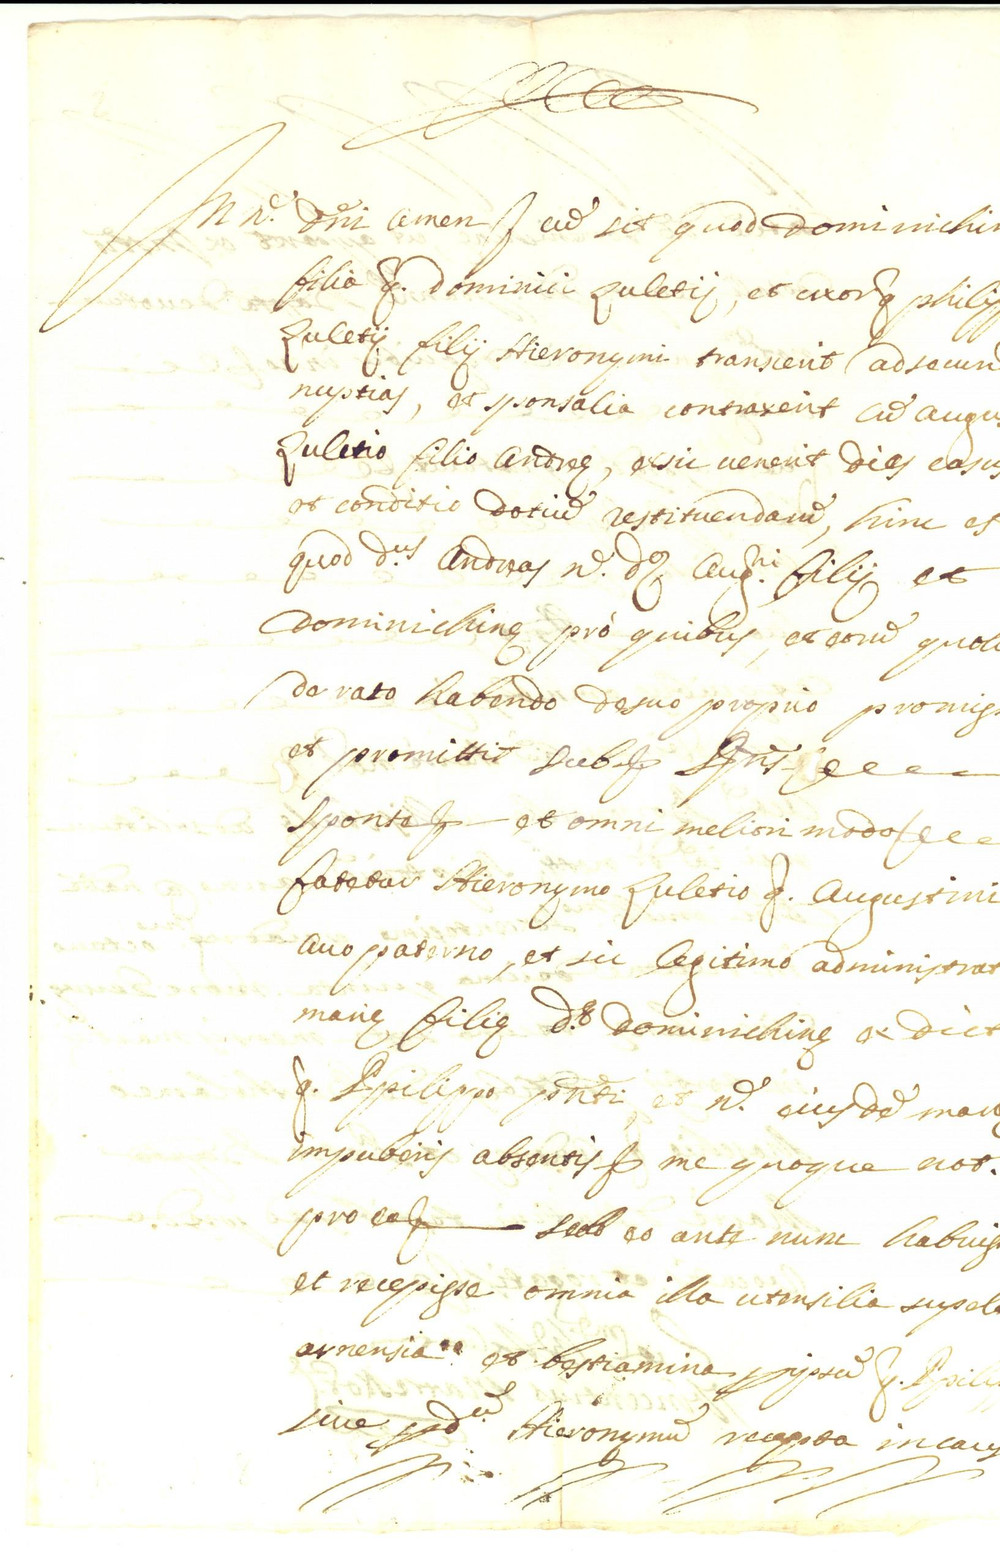 In n.e D.ni Amen cu sit quod Dominichin
filia q. Dominici Zuletij, et uxor q philipp
Zuletij filij Hieronymi transierit ad secun
nuptias, et sponsalia contraxerit cu Augus
Zuletio filio Andreę, et sic uenerit dies casus
et conditio dotiu restituendaru, hinc es
quod d.us Andreas n.e d. Aug.ni filij et
Dominichinę pro quibus, et eoru quoli
de rato habendo de suo proprio promiss
et promittit sub
sponte et omni meliori modo
fatetur Hieronymo Zuletio q. Augustini
auo paterno, et sic legitimo administrat
marię filię d.ę Dominichinę ex dict
q. Philippo pnti, et n.e eiusde marię
impuberis absentis me quoque not.
pro ea sub eo ante nunc habuiss
et recepisse omnia illa utensilia supele
arnensia et bestiamina p ipsu q. Philip
siue p d.um Hieronymu recepta in caus